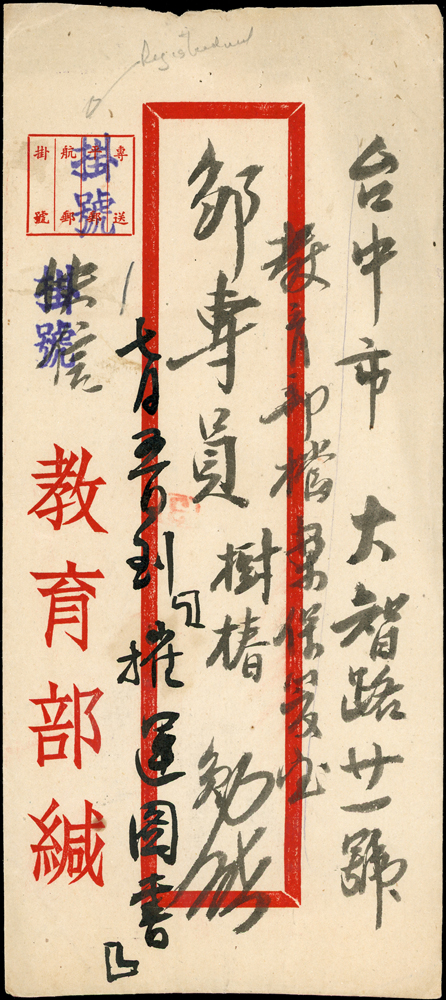 Registered
台中市 大智路廿一號
教育部檔案保管室
鄒專員樹椿
七月五日到「摧運圖書」
專送
平郵
航郵
掛號
掛號
掛號
快信
教育部緘